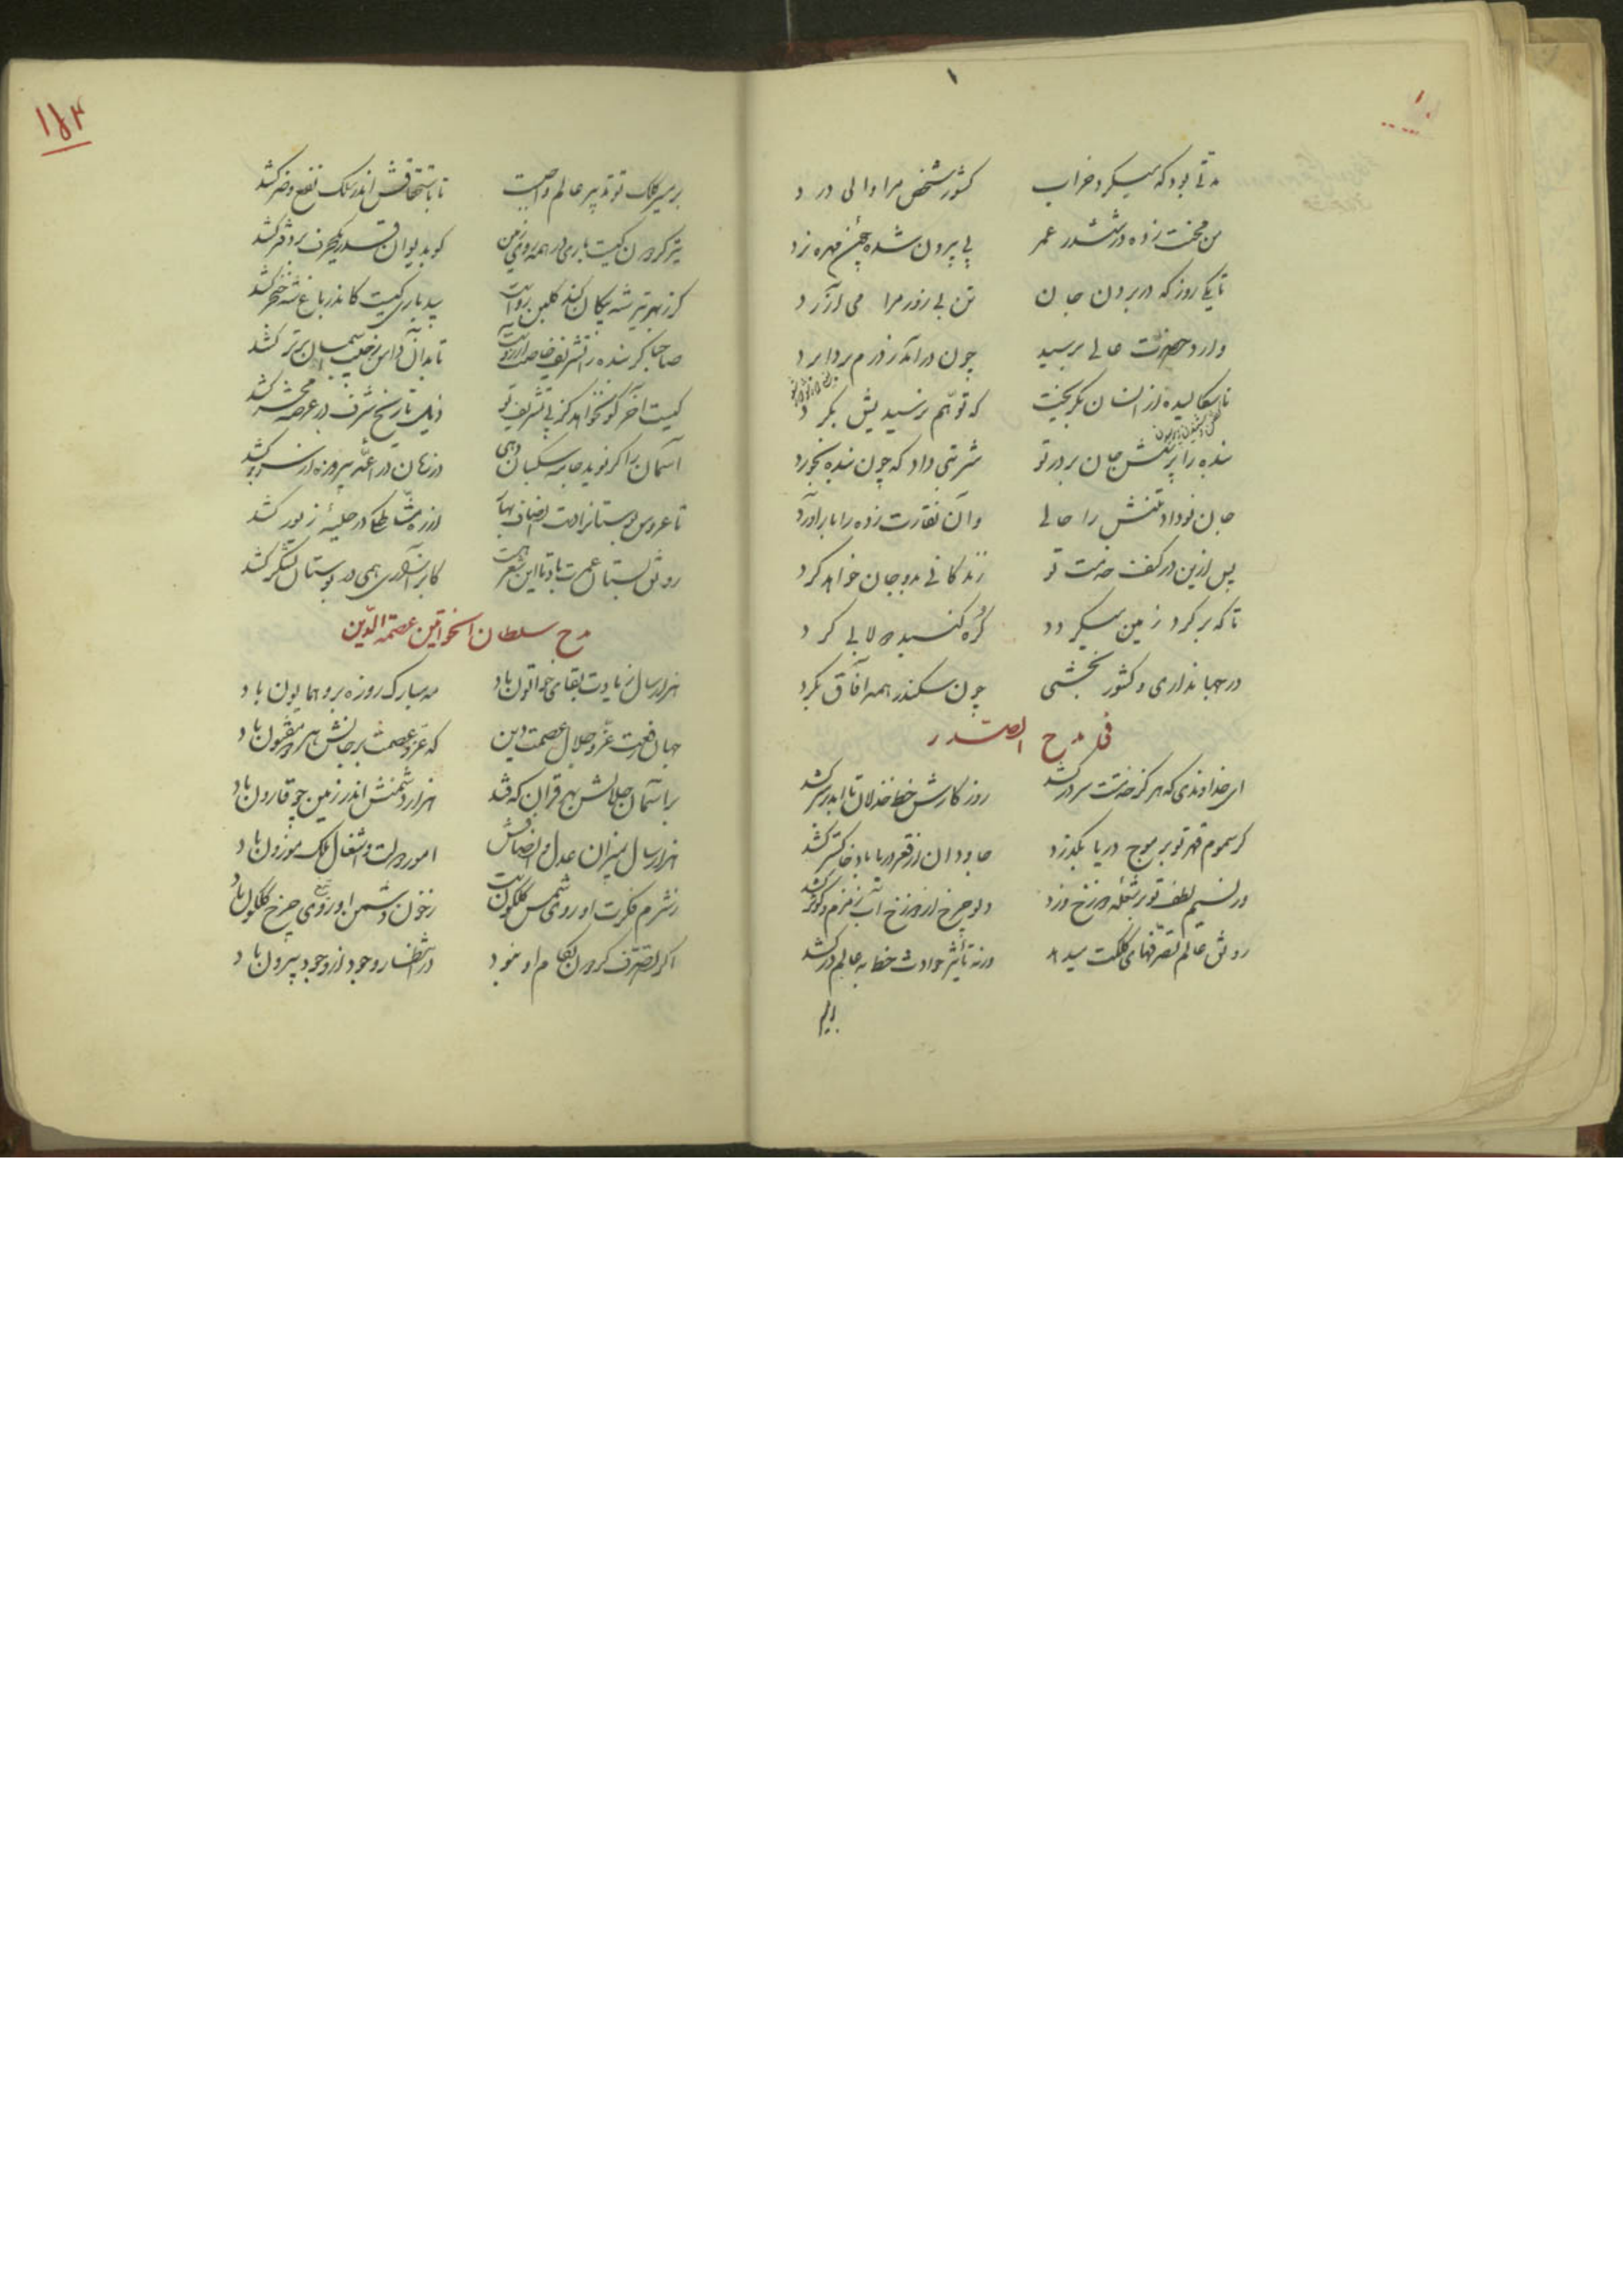 ۱
مدتی بود که میکرد خراب کشور شخص مرا والی درد
من محنت زده در ششدر عمر پی بیرون شده چین مهره نرد
تا یکی روز که در بردن جان تن بی زور مرا می آزرد
وارد حضرت عالی برسید چون درآمد ز درم بردابرد
ناسکالیده از انسان بگریخت که توهم نرسیدیش بگرد
بنده را پرسش جان پرور تو شربتی داد که چون بنده بخورد
جان نو داد تنش را حالی وان نقارت زده را بار آورد
پس ازین در کنف خدمت تو زندگانی بدو جان خواهد کرد
تا که بر گرد زمین میگردد کره گنبد دولابی گرد
در جهانداری و کشور بخشی چون سکندر همه آفاق بگرد
فی مدح الصدر
ای خداوندی که هر کز خدمتت سر درکشد روزگارش خط خذلان تا ابد بر سر کشد
گر سموم قهر تو بر موج دریا بگذرد جاودان از قعر دریا باد خاکستر کشد
ور نسیم لطف تو بر شعله دوزخ وزد دلو چرخ از دوزخ آب زمزم و کوثر کشد
رونق عالم تصرفهای کلکت میدهد ورنه تأثیر حوادث خط به عالم درکشد
۱۵۳
بر سر کلک تو تدبیر عالم واجب است تا باستحقاق اندر ملک نفع و ضر کشد
تیر گردون کیست باری در همه روی زمین کو بدیوان قدر یکحرف بر دفتر کشد
گر ز بهر تیر شه پیکان کند گلبن رواست بید باری کیست کاندر باغ شه خنجر کشد
صاحبا گر بنده را تشریف خاصت آرزوست تا بدان دامن ز جیب آسمان برتر کشد
کیست آخر کو نخواهد کز پی تشریف تو ذیل تاریخ شرف در عرصه محشر کشد
آسمان را گر نوید جامه سگبان دهی در زمان دراعه پیروزه از سر برکشد
تا عروس بوستانرا دست انصاف بهار از ره مشاطگی در حلیه و زیور کشد
رونق بستان عمرت باد تا این شعر هست کابر آذاری همی در بوستان لشکر کشد
مدح سلطان الخواتین عصمة الدین
هزار سال زیادت بقای خواتون باد مه مبارک روزه برو همایون باد
جهان رفعت و عز و جلال عصمت دین که عز و عصمت بر جانش هر دو مفتون باد
بر آسمان جلالش بهر قران که فتد هزار دشمنش اندر زمین چو قارون باد
هزار سال بمیزان عدل و انصافش امور دولت و اشغال ملک موزون باد
ز شرم فکرت او روی شمس گلگونست ز خون دشمن او روی چرخ گلگون باد
اگر تصرف گردون بکام او نبود در انتظار وجود از وجود بیرون باد